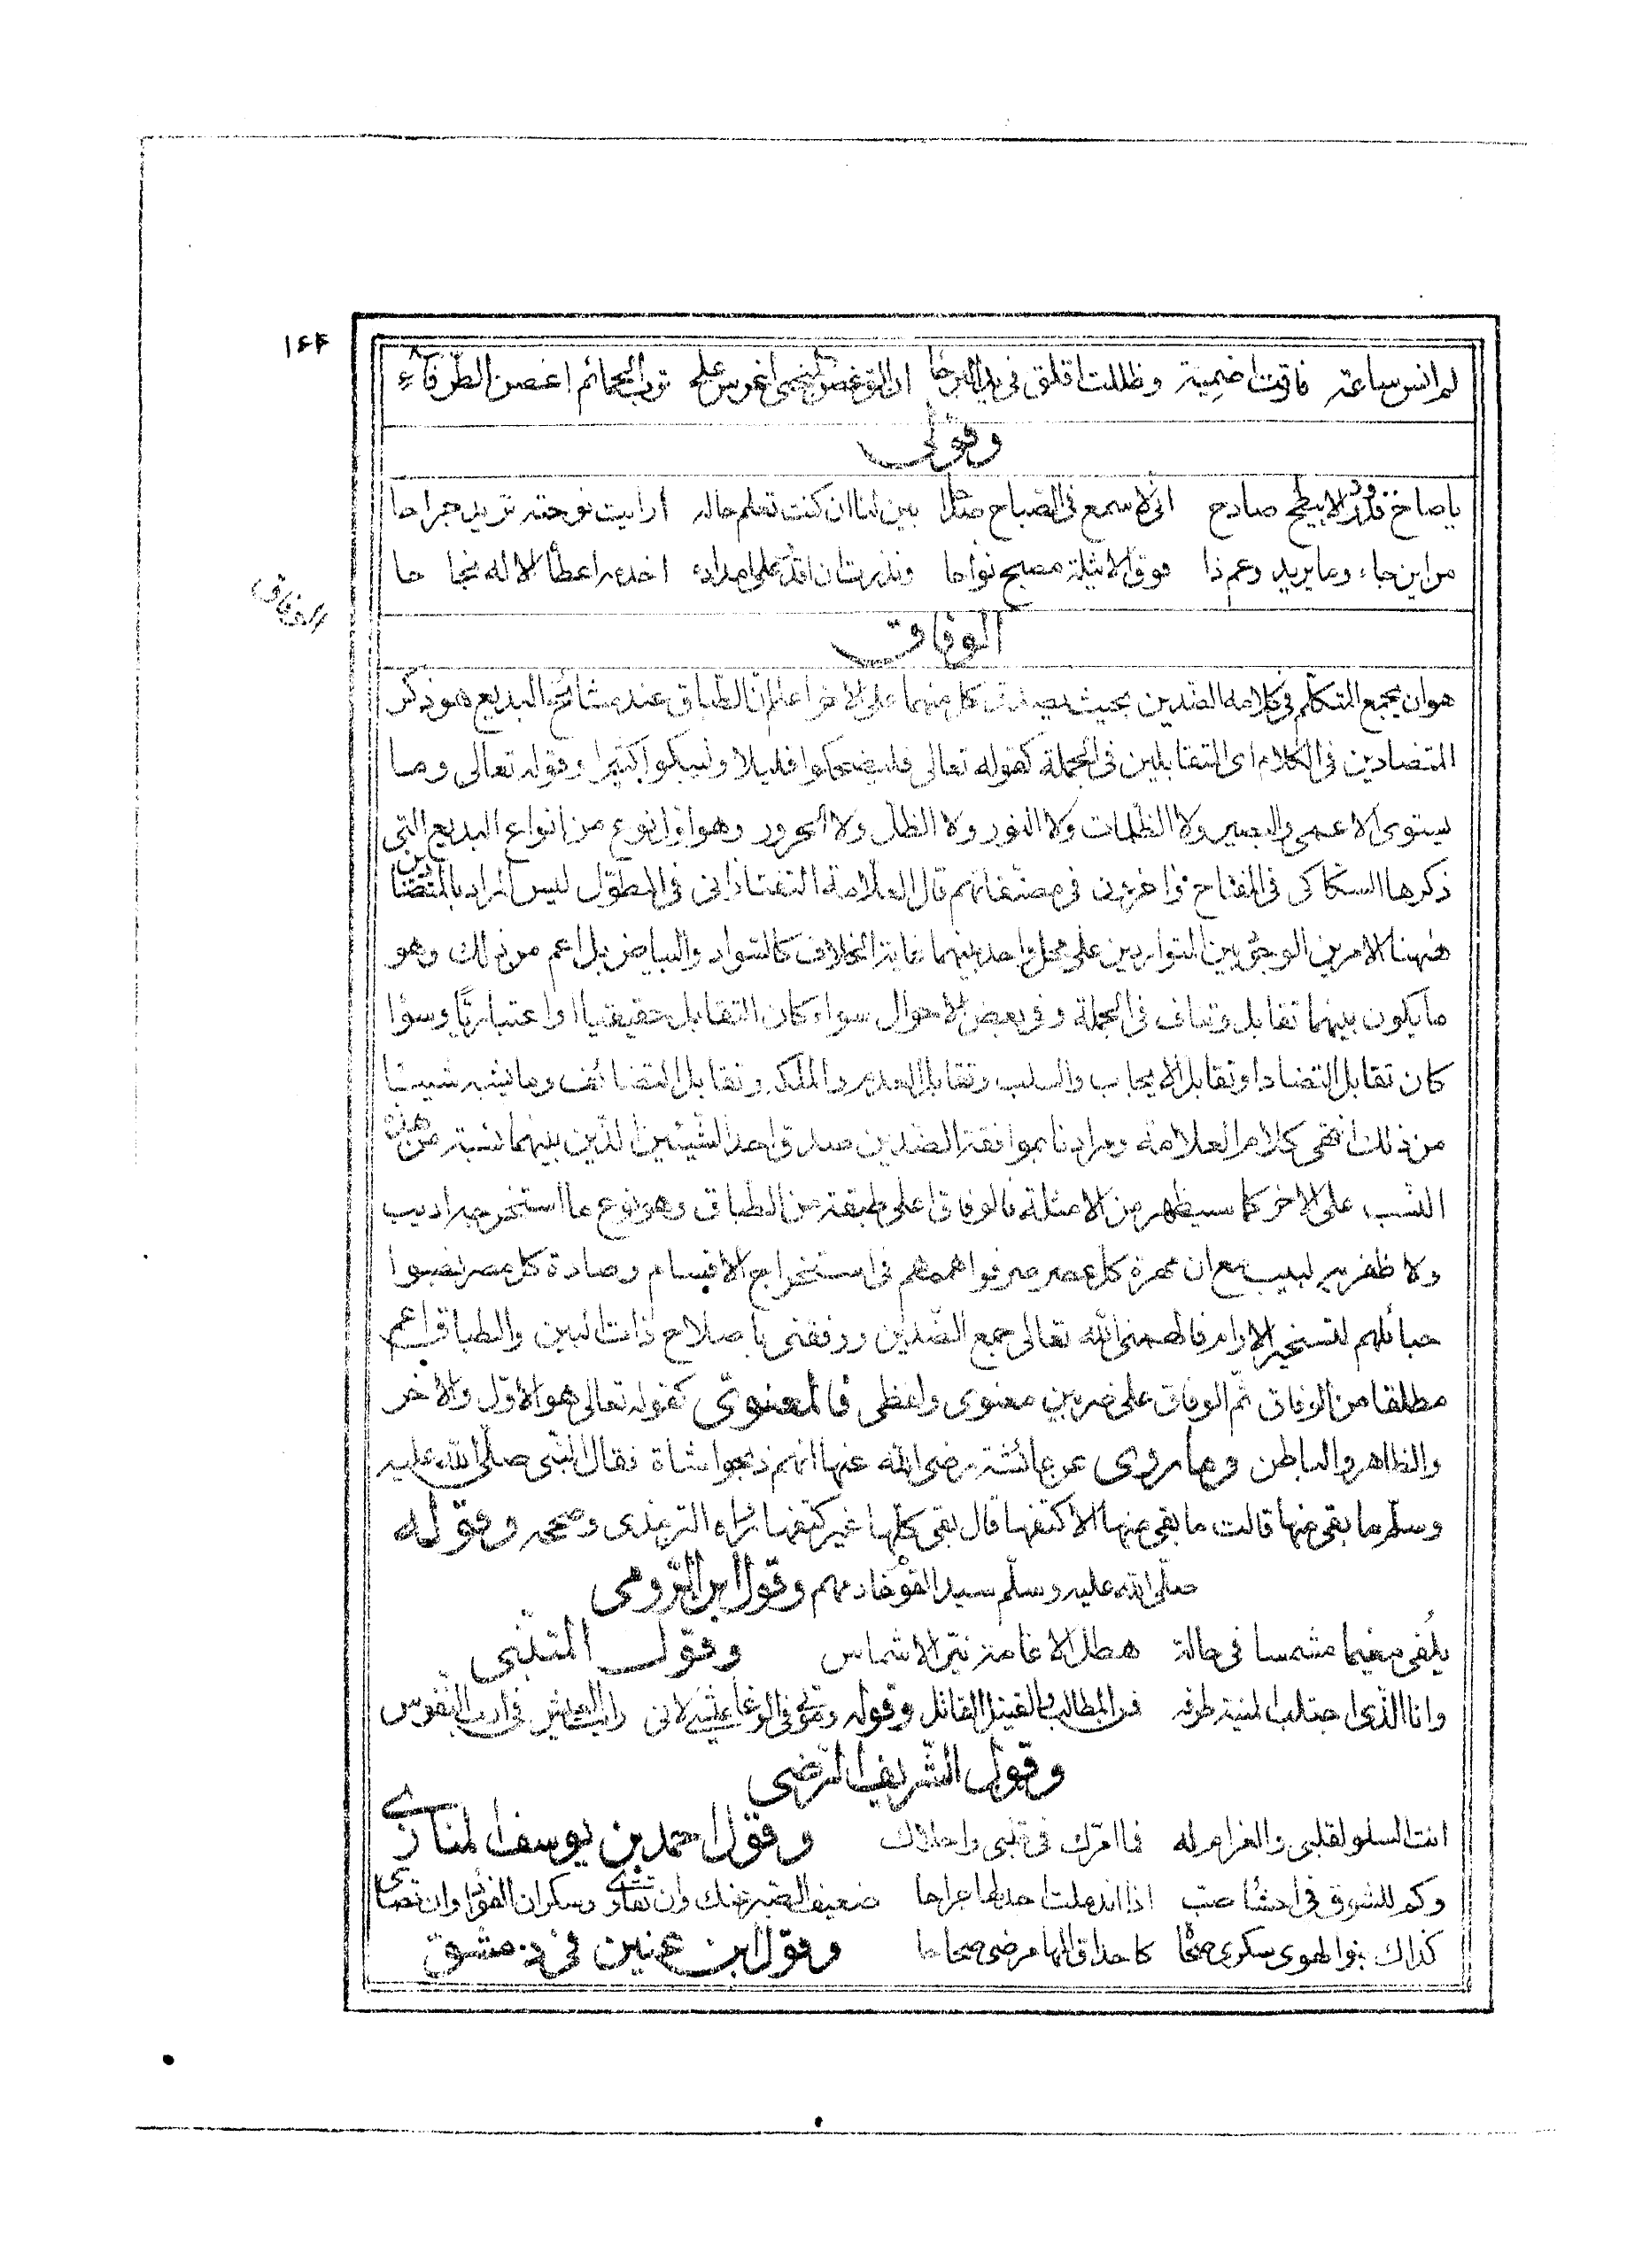 ۱۶۴
لم انس ساعة فارقت اضمية وظللت اقلق في يد البرحا ان التوغصن اغرس عليه توب الحمائم اغصن الطرفاء
وقولى
ياصاح قد ورد الابيطح صادح انى لاسمع فى الصباح بين لنا ان كنت تعلم حاله ارايت نوحته تزيد جراحا
من اين جاء وما يريد وعم ذا فوق الاثيلة مصبح نواحا ونذرت ان اقدر على امداده اخدمه اعطاء الاله نجاحا
الوفاق
الوفاق
هو ان يجمع المتكلم فى كلامه الضدين بحيث يصدق كل منهما على الاخر اعلم ان الطباق عند مشائخ البديع هو ذكر
المتضادين فى الكلام اى المتقابلين فى الجملة كقوله تعالى فليضحكوا قليلا وليبكوا كثيرا وقوله تعالى وما
يستوى الاعمى والبصير ولا الظلمات ولا النور ولا الظل ولا الحرور وهو اول نوع من انواع البديع التى
ذكرها السكاكى فى المفتاح واخرون فى مصنفاتهم قال العلامة التفتازانى فى المطول ليس المراد بالمتضادين
ههنا الامرين الوجوديين المتواردين على محل واحد بينهما غاية الخلاف كالسواد والبياض بل اعم من ذلك وهو
ما يكون بينهما تقابل وتناف فى الجملة وفى بعض الاحوال سواء كان التقابل حقيقيا او اعتباريا وسواء
كان تقابل التضاد او تقابل الايجاب والسلب وتقابل العدم والملكة وتقابل التضائف وما يشبه شيئا
من ذلك انتهى كلام العلامة ومرادنا بموافقة الضدين صدق احد الشيئين الذين بينهما نسبة من هذه
النسب على الاخر كما سيظهر من الامثلة فالوفاق اعلى طبقة من الطباق وهو نوع ما استخرجه اديب
ولا ظفر به لبيب مع ان مهرة كل عصر صرفوا هممهم فى استخراج الاقسام وصادة كل مصر نصبوا
حبائلهم لتسخير الارام فالهمنى الله تعالى جمع الضدين ووفقنى باصلاح ذات البين والطباق اعم
مطلقا من الوفاق ثم الوفاق على ضربين معنوى ولفظى فالمعنوى كقوله تعالى هو الاول والاخر
والظاهر والباطن وما روى عن عائشة رضى الله عنها انهم ذبحوا شاة فقال النبى صلى الله عليه
وسلم ما بقى منها قالت ما بقى منها الا كتفها قال بقى كلها غير كتفها رواه الترمذى وصححه وقوله
صلى الله عليه وسلم سيد القوم خادمهم وقول ابن الرومى
يلفى مغيما مشمسا فى حالة هطل الاغامة نير الاشماس وقول المتنبى
وانا الذى اجتلب المنية طرفه فمن المطالب والقتيل القاتل وقوله وقتلى فى الوغا عيشى لانى رايت العيش فى ارب النفوس
وقول الشريف الرضى
انت السلو لقلبى والغرام له فما امرك فى قلبى واحلاك وقول احمد بن يوسف المنازى
وكم للشوق فى احشاء صب اذا اندملت اجد لها جراحا ضعيف الصبر عنك وان تقاوى وسكران الفؤاد وان تصاحى
كذاك بنو الهوى سكرى صحاة كاحداق المها مرضى صحاحا وقول ابن عنين فى دمشق